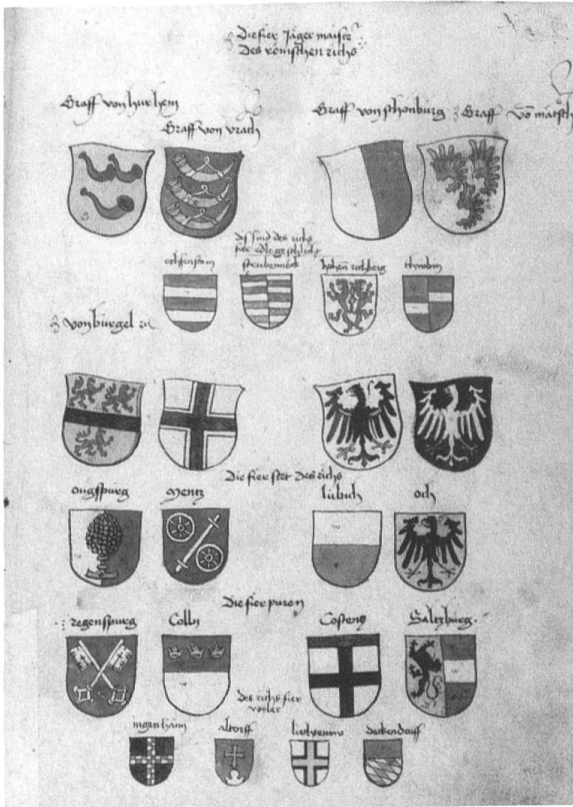 Die fier Jäger maister
Des römischen richs
Graff von hurhem
Graff von vrach
Graff von schonburg
Graff võ mätsch
diß sind des richs
fier edle geschlecht
ochsenstain
hohen rechberg
von bürgel
Die fier stet des richs
ougsspurg
Mentz
lübich
och
Die fier puren
regensspurg
Colln
Costentz
Saltzburg
des richs fier
altorff
deckendorff